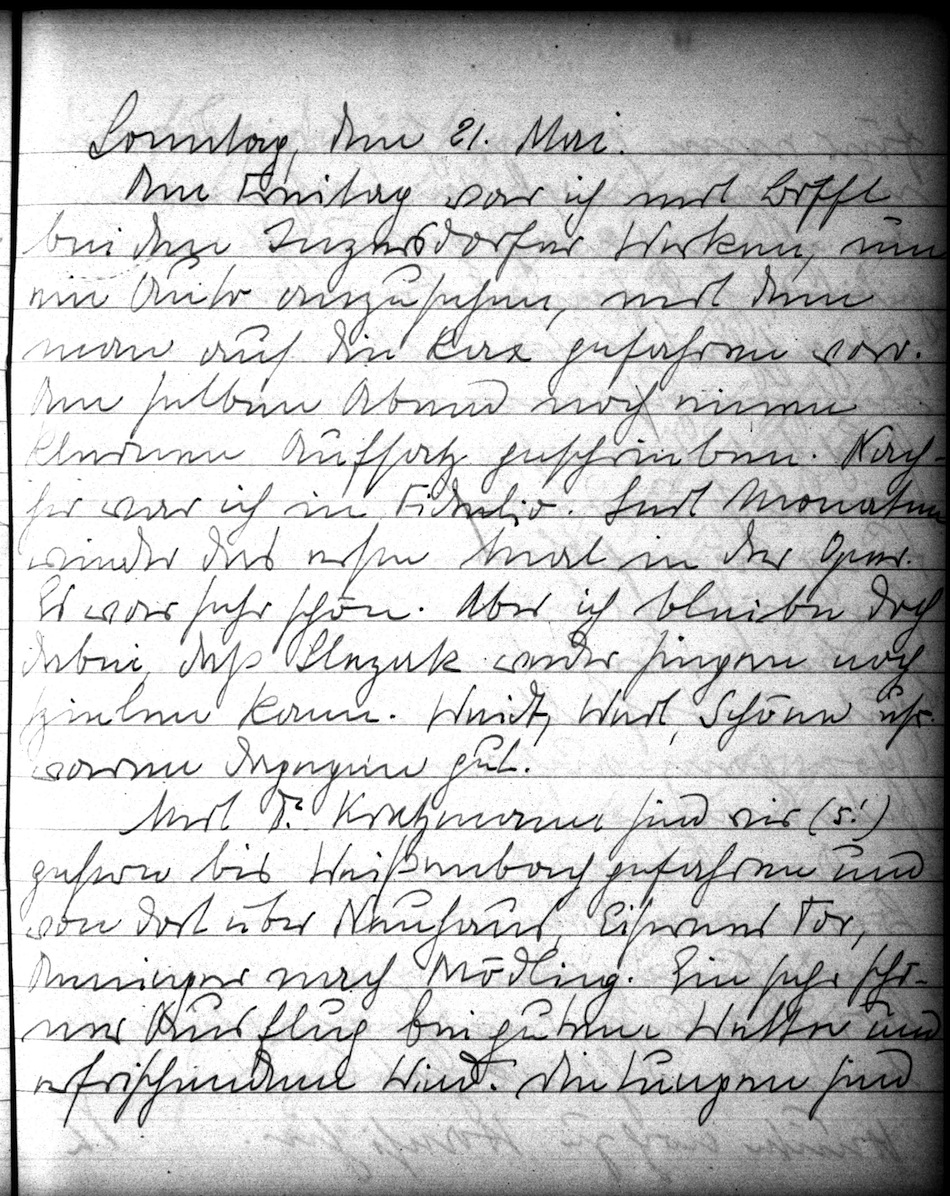 Sonntag, den 21. Mai.
Am Freitag war ich mit Löffl
bei den Inzersdorfer Werken, um
ein Auto anzusehen, mit dem
man auf die Rax gefahren war.
Am selben Abend noch einen
kleinen Aufsatz geschrieben. Nach-
her war ich in Fidelio. Seit Monaten
wieder das erste Mal in der Oper.
Es war sehr schön. Aber ich bleibe doch
dabei, daß Slezak weder singen noch
spielen kann. Weidt, Schöne
waren dagegen gut.
Mit Dr. Kratzmann sind wir (5!)
gestern bis Weißenbach gefahren und
von dort über Neuhaus, Eisernes Tor,
Anninger nach Mödling. Ein sehr schö-
ner Ausflug bei gutem Wetter und
erfrischendem Wind. Die Lungen sind